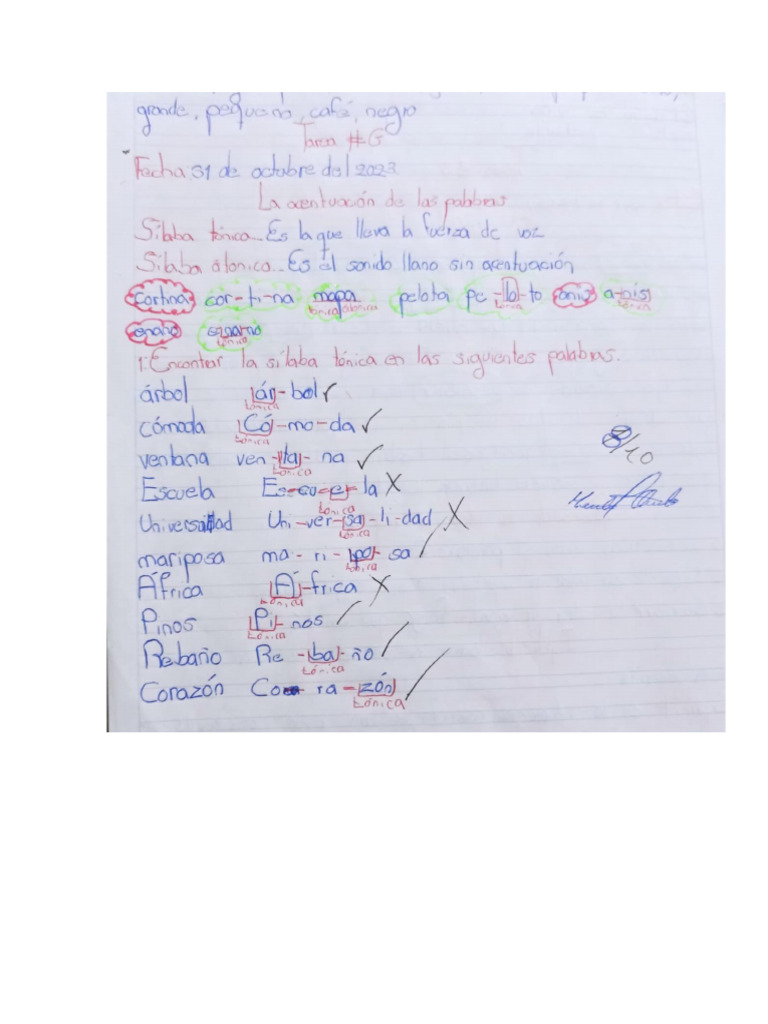 grande, pequeño, café, negro
Tarea #6
Fecha: 31 de octubre del 2023
La acentuación de las palabras
Sílaba tónica... Es la que lleva la fuerza de voz
Sílaba átonica... Es el sonido llano sin acentuación
cortina cor-ti-na mapa pelota pe-lo-to a-nis
tónica átonica tónica tónica
tónica
1. Encontrar la sílaba tónica en las siguientes palabras.
árbol ár-bol
tónica
cómoda Có-mo-da
tónica
ventana ven-ta-na
tónica
Escuela Es-cu-e-la X
tónica
Universidad Uni-ver-sa-li-dad X
tónica
mariposa ma-ri-po-sa
tónica
África Á-frica X
tónica
Pinos Pi-nos
tónica
Rebaño Re-ba-ño
tónica
Corazón Co-ra-zón
tónica
8/10